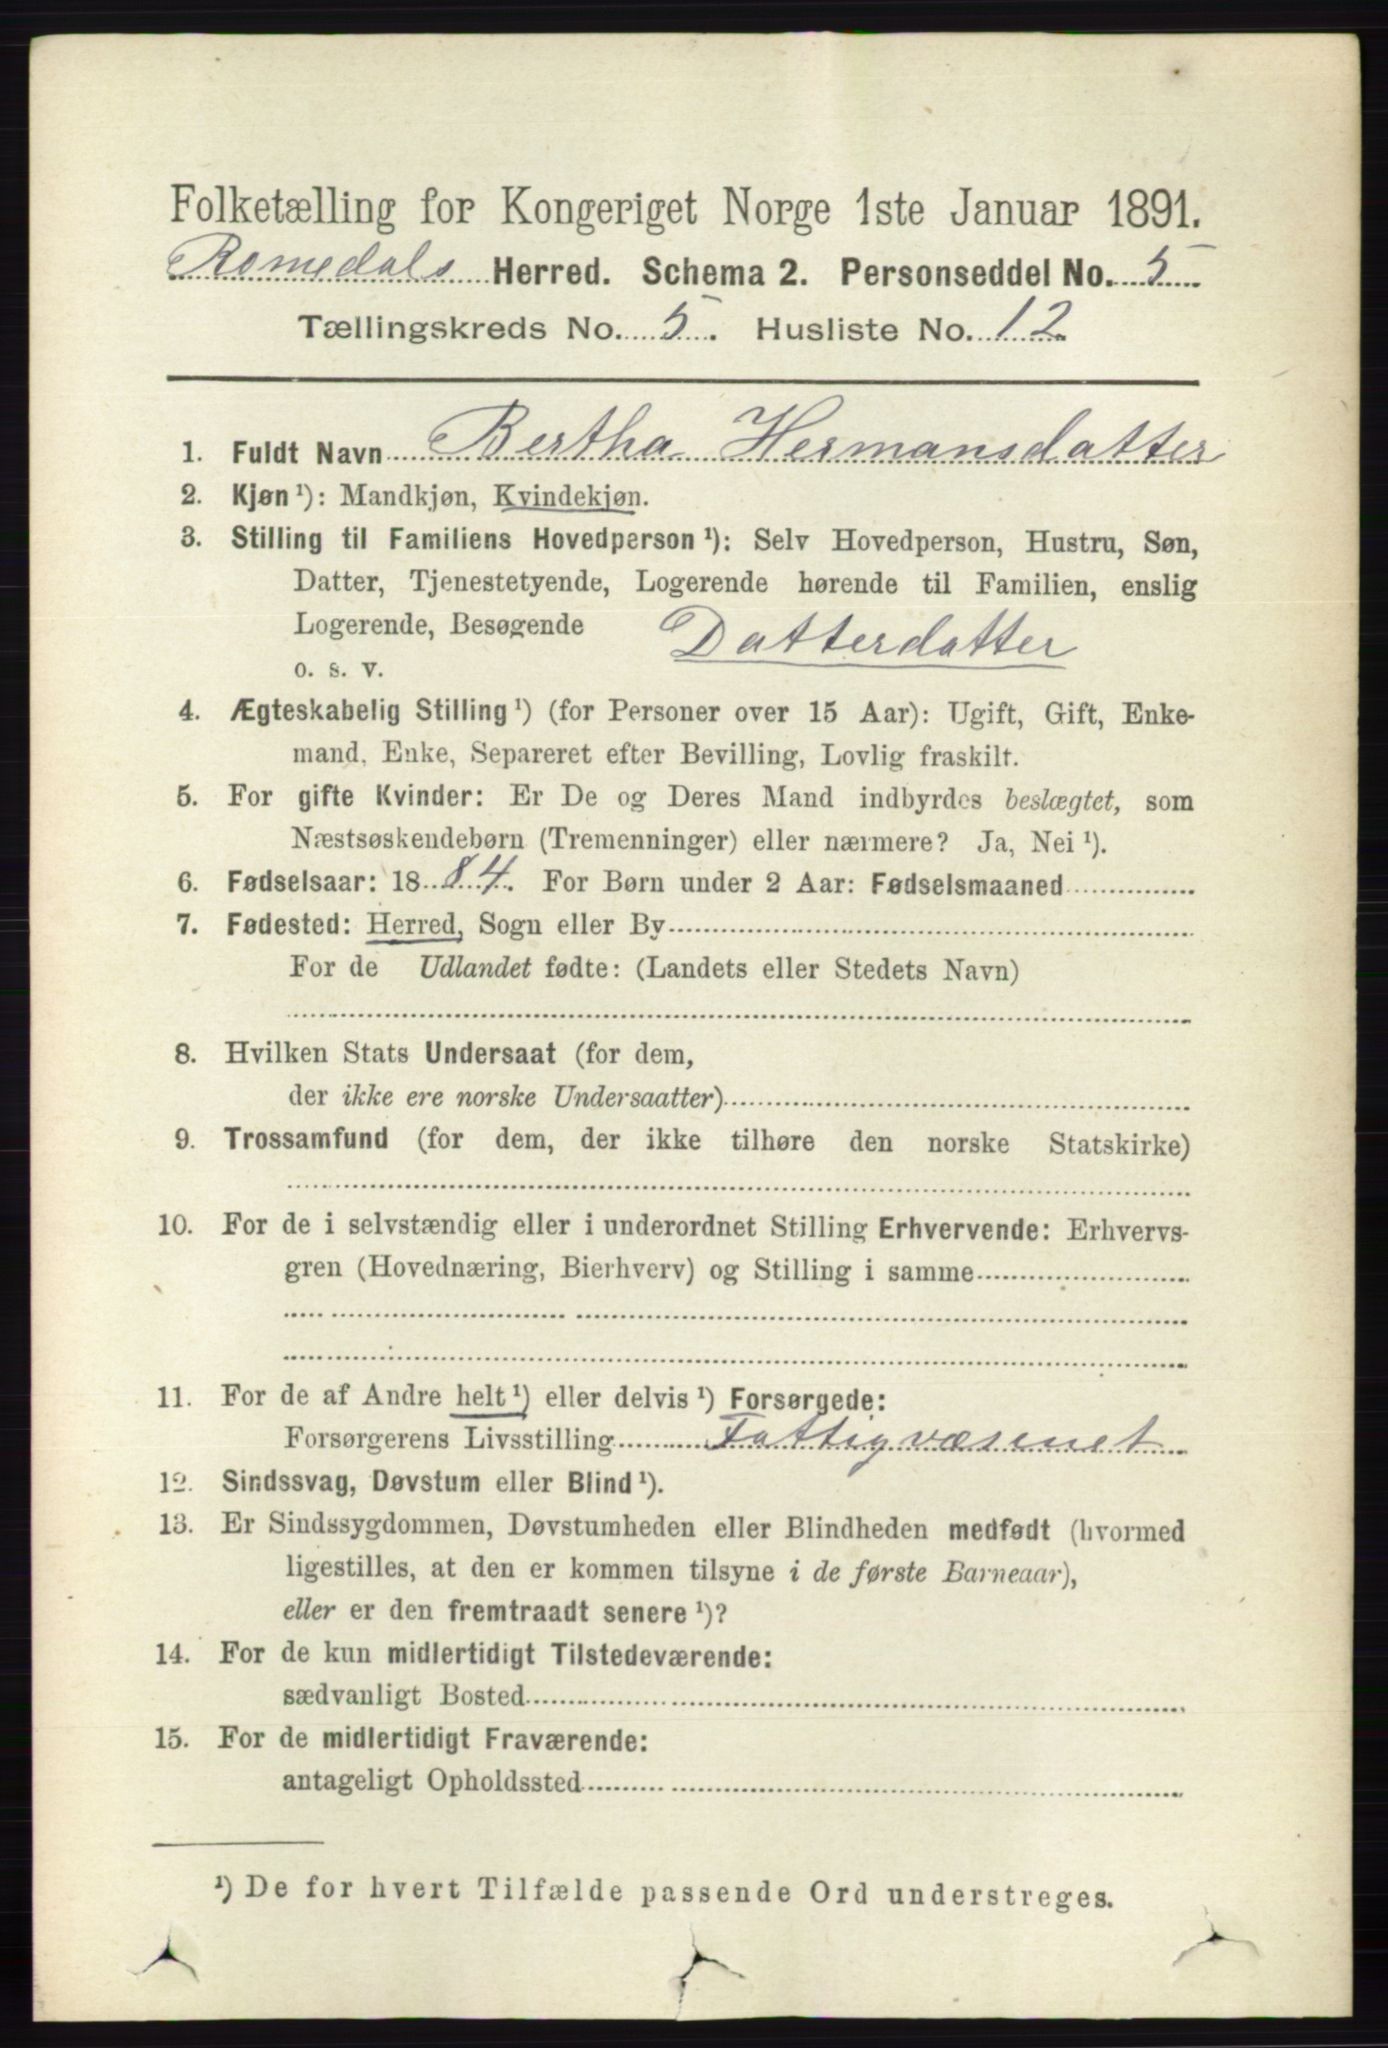 Folketælling for Kongeriget Norge 1ste Januar 1891.
Romedals Herred. Schema 2. Personseddel No. 5
Tællingskreds No. 5. Husliste No. 12
1. Fuldt Navn Bertha Hermansdatter
2. Kjøn ¹): Mandkjøn, Kvindekjøn.
3. Stilling til Familiens Hovedperson ¹): Selv Hovedperson, Hustru, Søn,
Datter, Tjenestetyende, Logerende hørende til Familien, enslig
Logerende, Besøgende
Datterdatter
o. s. v.
4. Ægteskabelig Stilling ¹) (for Personer over 15 Aar): Ugift, Gift, Enke-
mand, Enke, Separeret efter Bevilling, Lovlig fraskilt.
5. For gifte Kvinder: Er De og Deres Mand indbyrdes beslægtet, som
Næstsøskendebørn (Tremenninger) eller nærmere? Ja, Nei ¹).
6. Fødselsaar: 1884. For Børn under 2 Aar: Fødselsmaaned
7. Fødested: Herred, Sogn eller By
For de Udlandet fødte: (Landets eller Stedets Navn)
8. Hvilken Stats Undersaat (for dem,
der ikke ere norske Undersaatter)
9. Trossamfund (for dem, der ikke tilhøre den norske Statskirke)
10. For de i selvstændig eller i underordnet Stilling Erhvervende: Erhvervs-
gren (Hovednæring, Bierhverv) og Stilling i samme
11. For de af Andre helt ¹) eller delvis ¹) Forsørgede:
Forsørgerens Livsstilling Fattigvæsenet
12. Sindssvag, Døvstum eller Blind ¹).
13. Er Sindssygdommen, Døvstumheden eller Blindheden medfødt (hvormed
ligestilles, at den er kommen tilsyne i de første Barneaar),
eller er den fremtraadt senere ¹)?
14. For de kun midlertidigt Tilstedeværende:
sædvanligt Bosted
15. For de midlertidigt Fraværende:
antageligt Opholdssted
¹) De for hvert Tilfælde passende Ord understreges.